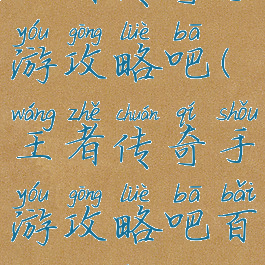 yóu gōng lüè bā
游攻略吧(
wáng zhě chuán qí shǒu
王者传奇手
yóu gōng lüè bā bǎi
游攻略吧百